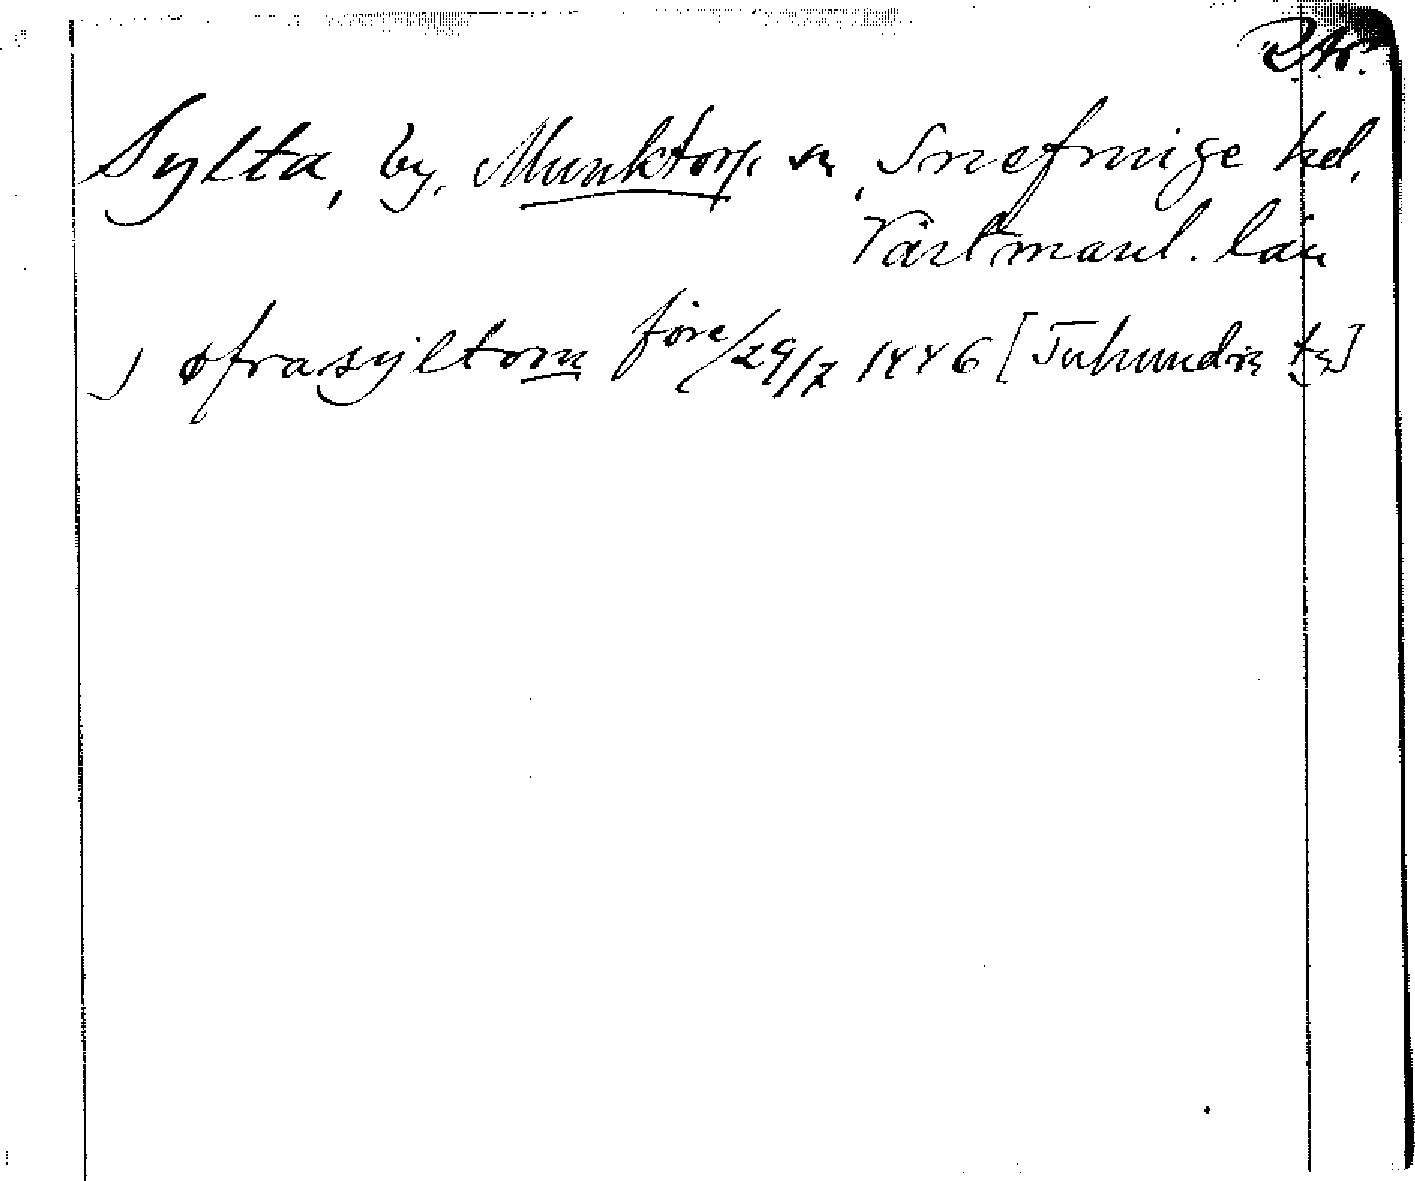 Sylta, by, Munktorp sn, Snefringe hd,
Västmanl. län
J ofrasyltom före 29/7 1446 [Tuhundra